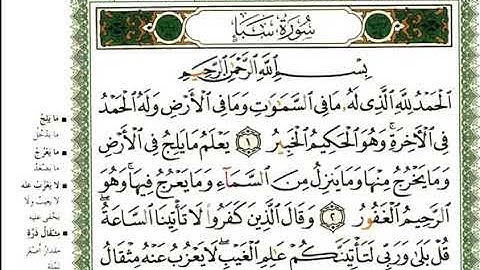 سُورَةُ سَبَإٍ
بِسْمِ ٱللَّهِ ٱلرَّحْمَٰنِ ٱلرَّحِيمِ
ٱلْحَمْدُ لِلَّهِ ٱلَّذِى لَهُۥ مَا فِى ٱلسَّمَٰوَٰتِ وَمَا فِى ٱلْأَرْضِ وَلَهُ ٱلْحَمْدُ
فِى ٱلْأَخِرَةِ ۚ وَهُوَ ٱلْحَكِيمُ ٱلْخَبِيرُ ١ يَعْلَمُ مَا يَلِجُ فِى ٱلْأَرْضِ
وَمَا يَخْرُجُ مِنْهَا وَمَا يَنزِلُ مِنَ ٱلسَّمَآءِ وَمَا يَعْرُجُ فِيهَا ۚ وَهُوَ
ٱلرَّحِيمُ ٱلْغَفُورُ ٢ وَقَالَ ٱلَّذِينَ كَفَرُوا۟ لَا تَأْتِينَا ٱلسَّاعَةُ ۖ
قُلْ بَلَىٰ وَرَبِّى لَتَأْتِيَنَّكُمْ عَٰلِمِ ٱلْغَيْبِ ۖ لَا يَعْزُبُ عَنْهُ مِثْقَالُ
مَا يَلِجُ
مَا يَدْخُلُ
مَا يَعْرُجُ
مَا يَصْعَدُ
لَا يَعْزُبُ عَنْهُ
لا يَغِيبُ ولا
يَخْفَى عليه
مِثْقَالُ ذَرَّةٍ
مِقْدَارُ أَصْغَرِ
نَمْلَةٍ